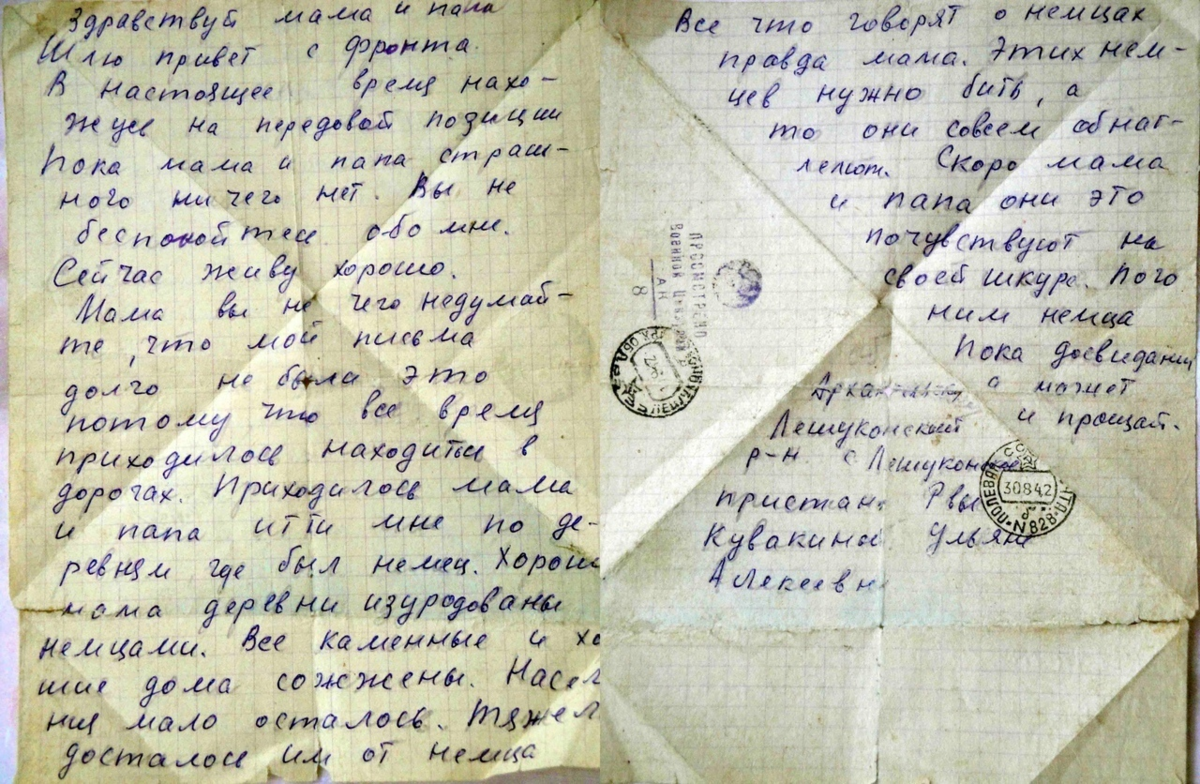 Здравствуй мама и папа
Шлю привет с фронта.
В настоящее время нахо-
жусь на передовой позиции
Пока мама и папа страш-
ного ни чего нет. Вы не
беспокойтесь обо мне.
Сейчас живу хорошо.
Мама вы не чего недумай-
те, что мой письма
долго не была, это
потому что все время
приходилось находиться в
дорогах. Приходилось мама
и папа итти мне по де-
ревням где был немец. Хорош
мама деревни изуродованы
немцами. Все каменные и хо
шие дома сожжены. Насел
ния мало осталось. Тяжел
досталось им от немца
Все что говорят о немцах
правда мама. Этих нем-
цев нужно бить, а
то они совсем обнаг-
леют. Скоро мама
и папа они это
почувствуют на
своей шкуре. Пого
ним немца
Пока досвидания
а может
и прощай.
Лешуконский
р-н с Лешуконс
пристан
Кувакиной Ульяне
Алексеевн
ПРОСМОТРЕНО
Военной Цензурой
8
30842
ПОЛЕВАЯ
N 828